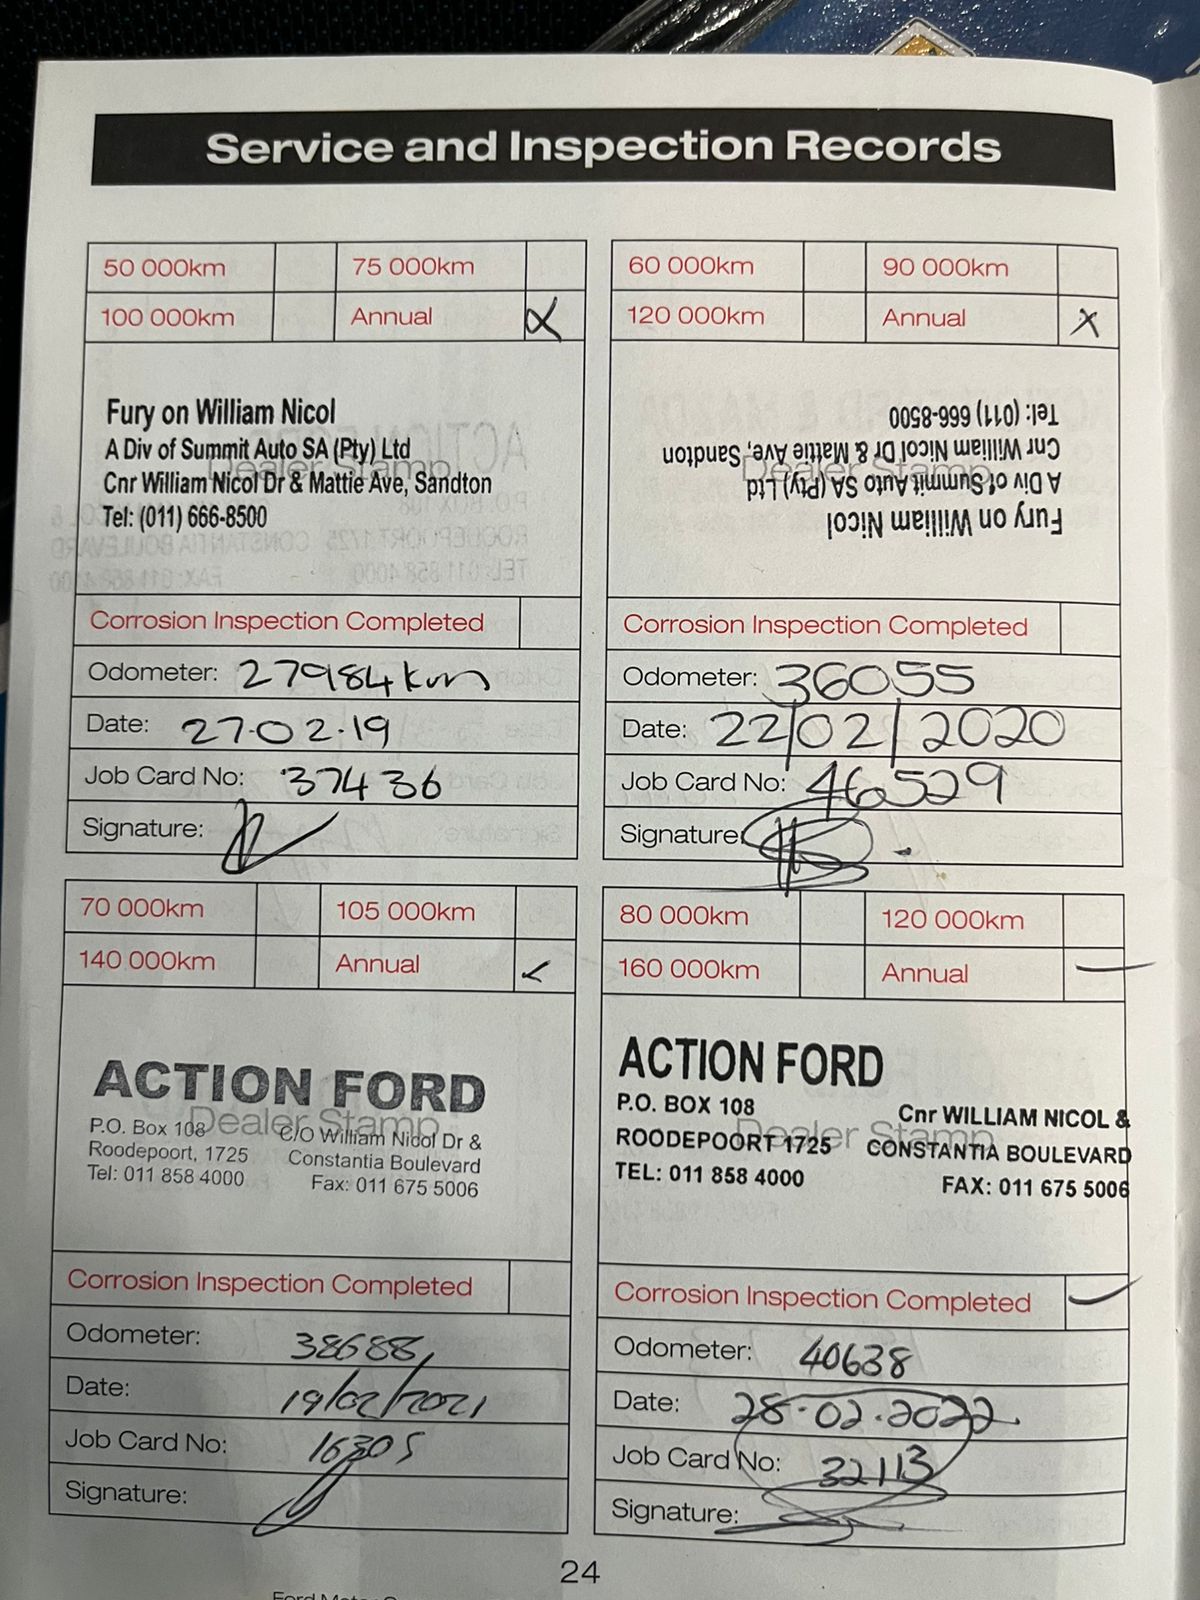 Service and Inspection Records
50 000km 75 000km
100 000km Annual
Fury on William Nicol
A Div of Summit Auto SA (Pty) Ltd
Dealer Stamp
Cnr William Nicol Dr & Mattie Ave, Sandton
Tel: (011) 666-8500
Corrosion Inspection Completed
Odometer: 27984km
Date: 27.02.19
Job Card No: 37436
Signature:
60 000km 90 000km
120 000km Annual
Fury on William Nicol
A Div of Summit Auto SA (Pty) Ltd
Dealer Stamp
Cnr William Nicol Dr & Mattie Ave, Sandton
Tel: (011) 666-8500
Corrosion Inspection Completed
Odometer: 36055
Date: 22/02/2020
Job Card No: 46529
Signature:
70 000km 105 000km
140 000km Annual
ACTION FORD
Dealer Stamp
P.O. Box 108 C/O William Nicol Dr &
Roodepoort, 1725 Constantia Boulevard
Tel: 011 858 4000 Fax: 011 675 5006
Corrosion Inspection Completed
Odometer: 38688
Date: 19/02/2021
Job Card No: 16305
Signature:
80 000km 120 000km
160 000km Annual
ACTION FORD
P.O. BOX 108 Cnr WILLIAM NICOL &
Dealer Stamp
ROODEPOORT 1725 CONSTANTIA BOULEVARD
TEL: 011 858 4000 FAX: 011 675 5006
Corrosion Inspection Completed
Odometer: 40638
Date: 28.02.2022
Job Card No: 32113
Signature:
24